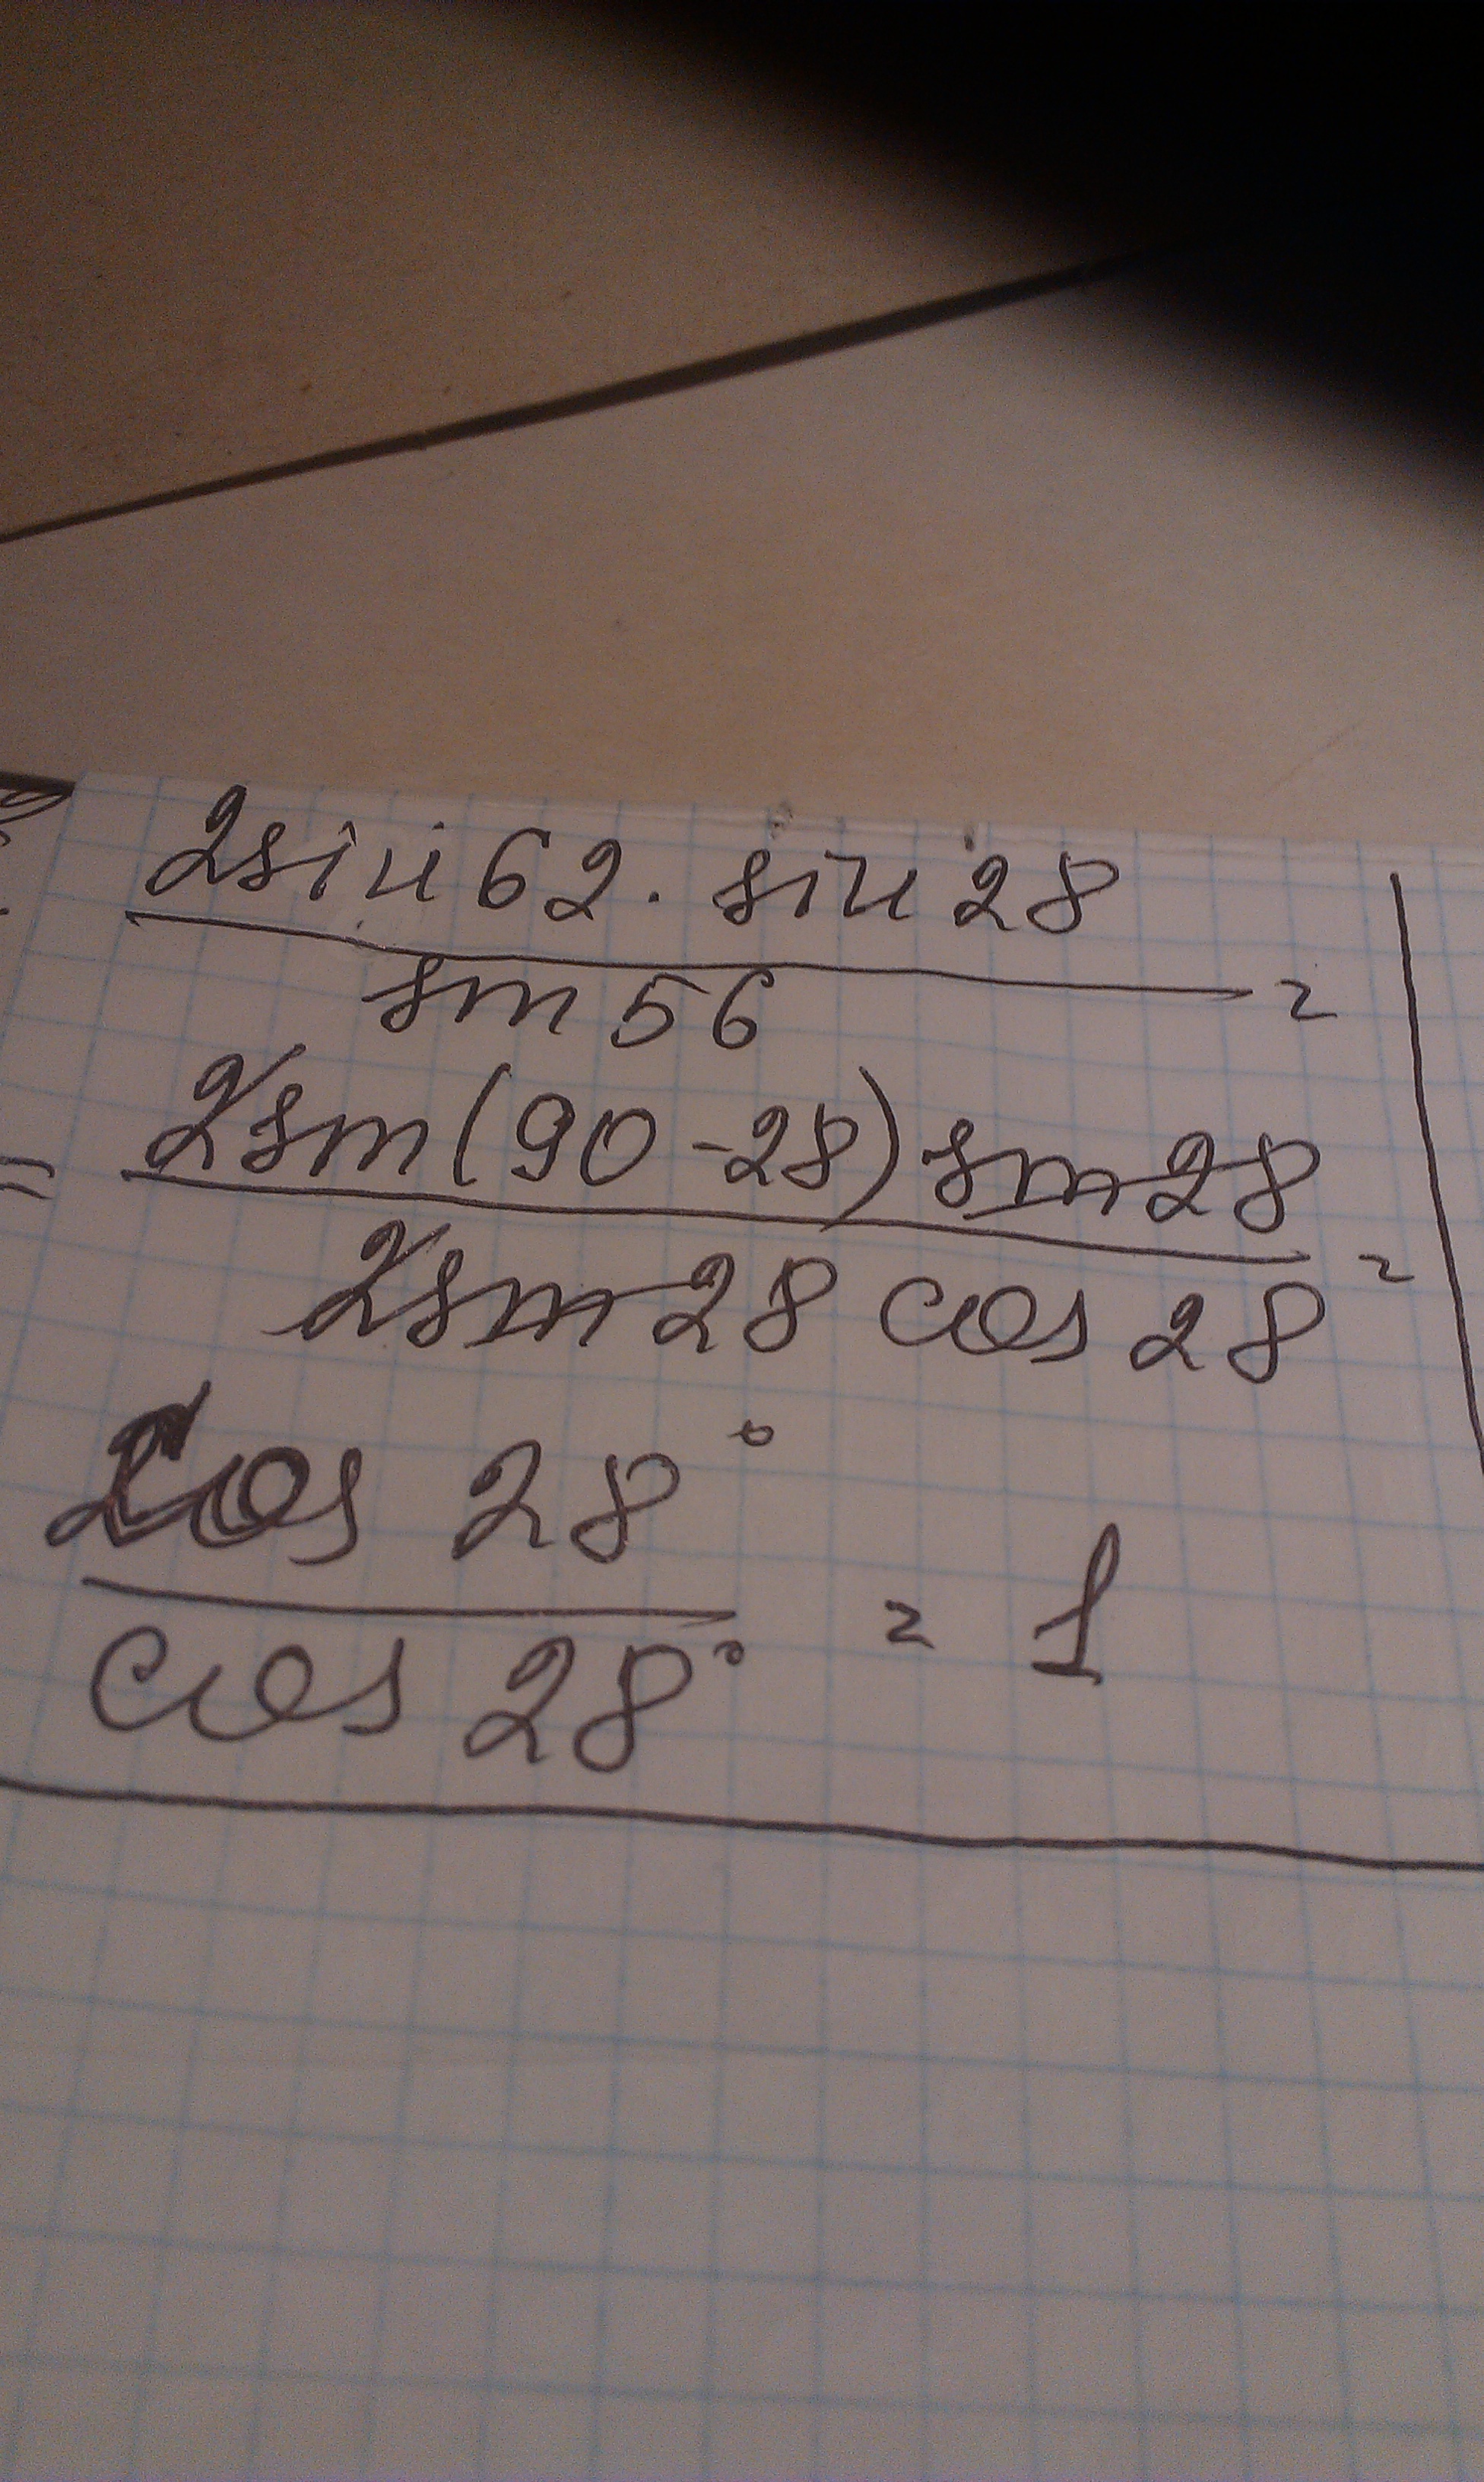 2sin 62 · sin 28
sin 56 =
= 2sin(90 - 28) sin 28
2sin 28 cos 28 =
cos 28°
cos 28° = 1